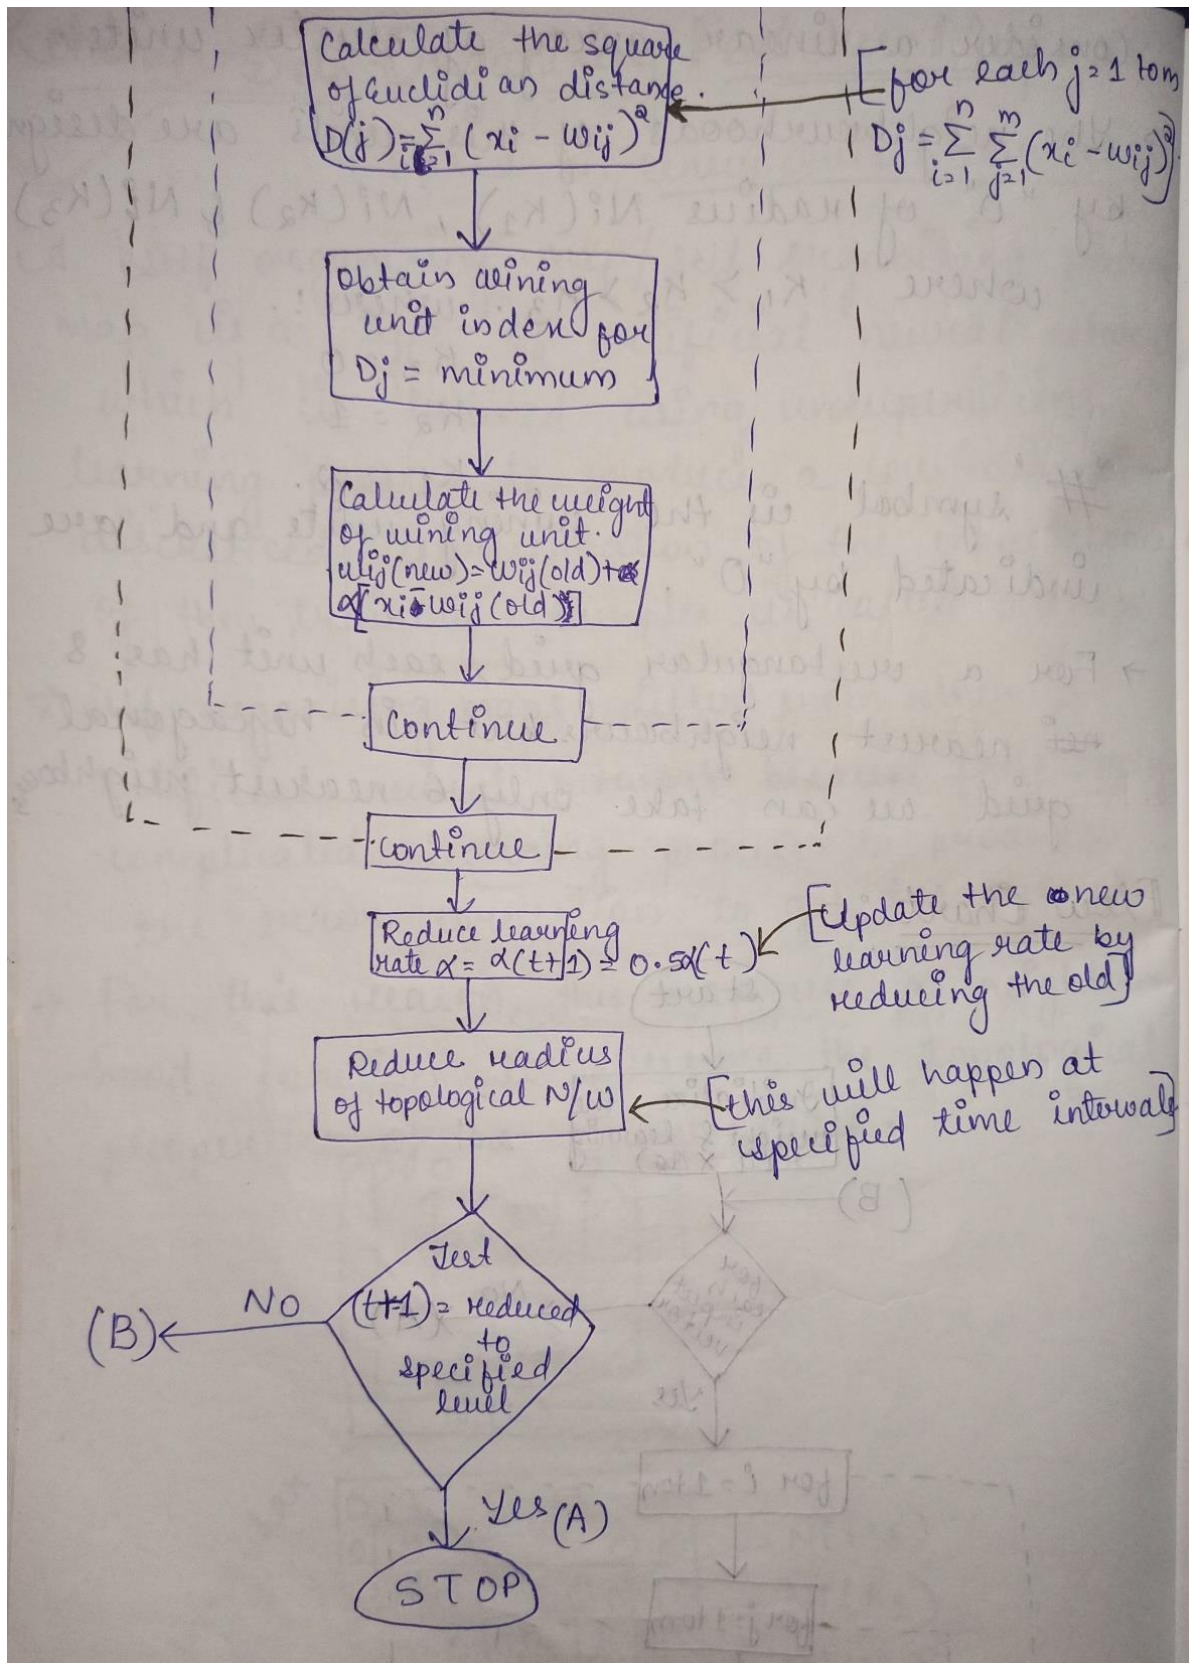 Calculate the square
of Euclidian distance.
D(j) = n∑i=1 (xi - wij)²
[for each j=1 to m
Dj = n∑i=1 m∑j=1 (xi - wij)²]
Obtain wining
unit index for
Dj = minimum
Calculate the weight
of wining unit.
wij(new) = wij(old) +
α[xi - wij(old)]
Continue
Continue
Reduce learning
rate α = α(t+1) = 0.5α(t)
[Update the new
learning rate by
reducing the old]
Reduce radius
of topological N/W
[this will happen at
specified time intervals]
Test
(t+1) = reduced
to
specified
level
NO
(B)
Yes (A)
STOP